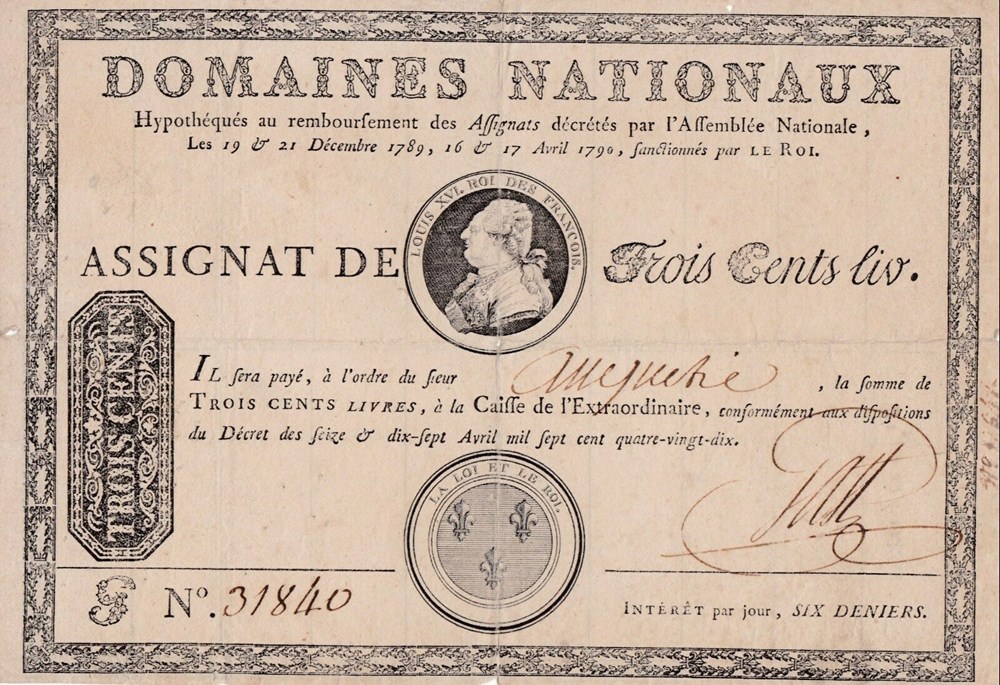 DOMAINES NATIONAUX
Hypothéqués au rembourſement des Aſſignats décrétés par l'Aſſemblée Nationale,
Les 19 & 21 Décembre 1789, 16 & 17 Avril 1790, ſanctionnés par LE ROI.
LOUIS XVI. ROI DES FRANÇOIS.
ASSIGNAT DE Trois Cents liv.
TROIS CENTS
IL ſera payé, à l'ordre du ſieur , la ſomme de
TROIS CENTS LIVRES, à la Caiſſe de l'Extraordinaire, conformément aux diſpoſitions
du Décret des ſeize & dix-ſept Avril mil ſept cent quatre-vingt-dix.
LA LOI ET LE ROI.
N°. 31840
INTÉRÊT par jour, SIX DENIERS.